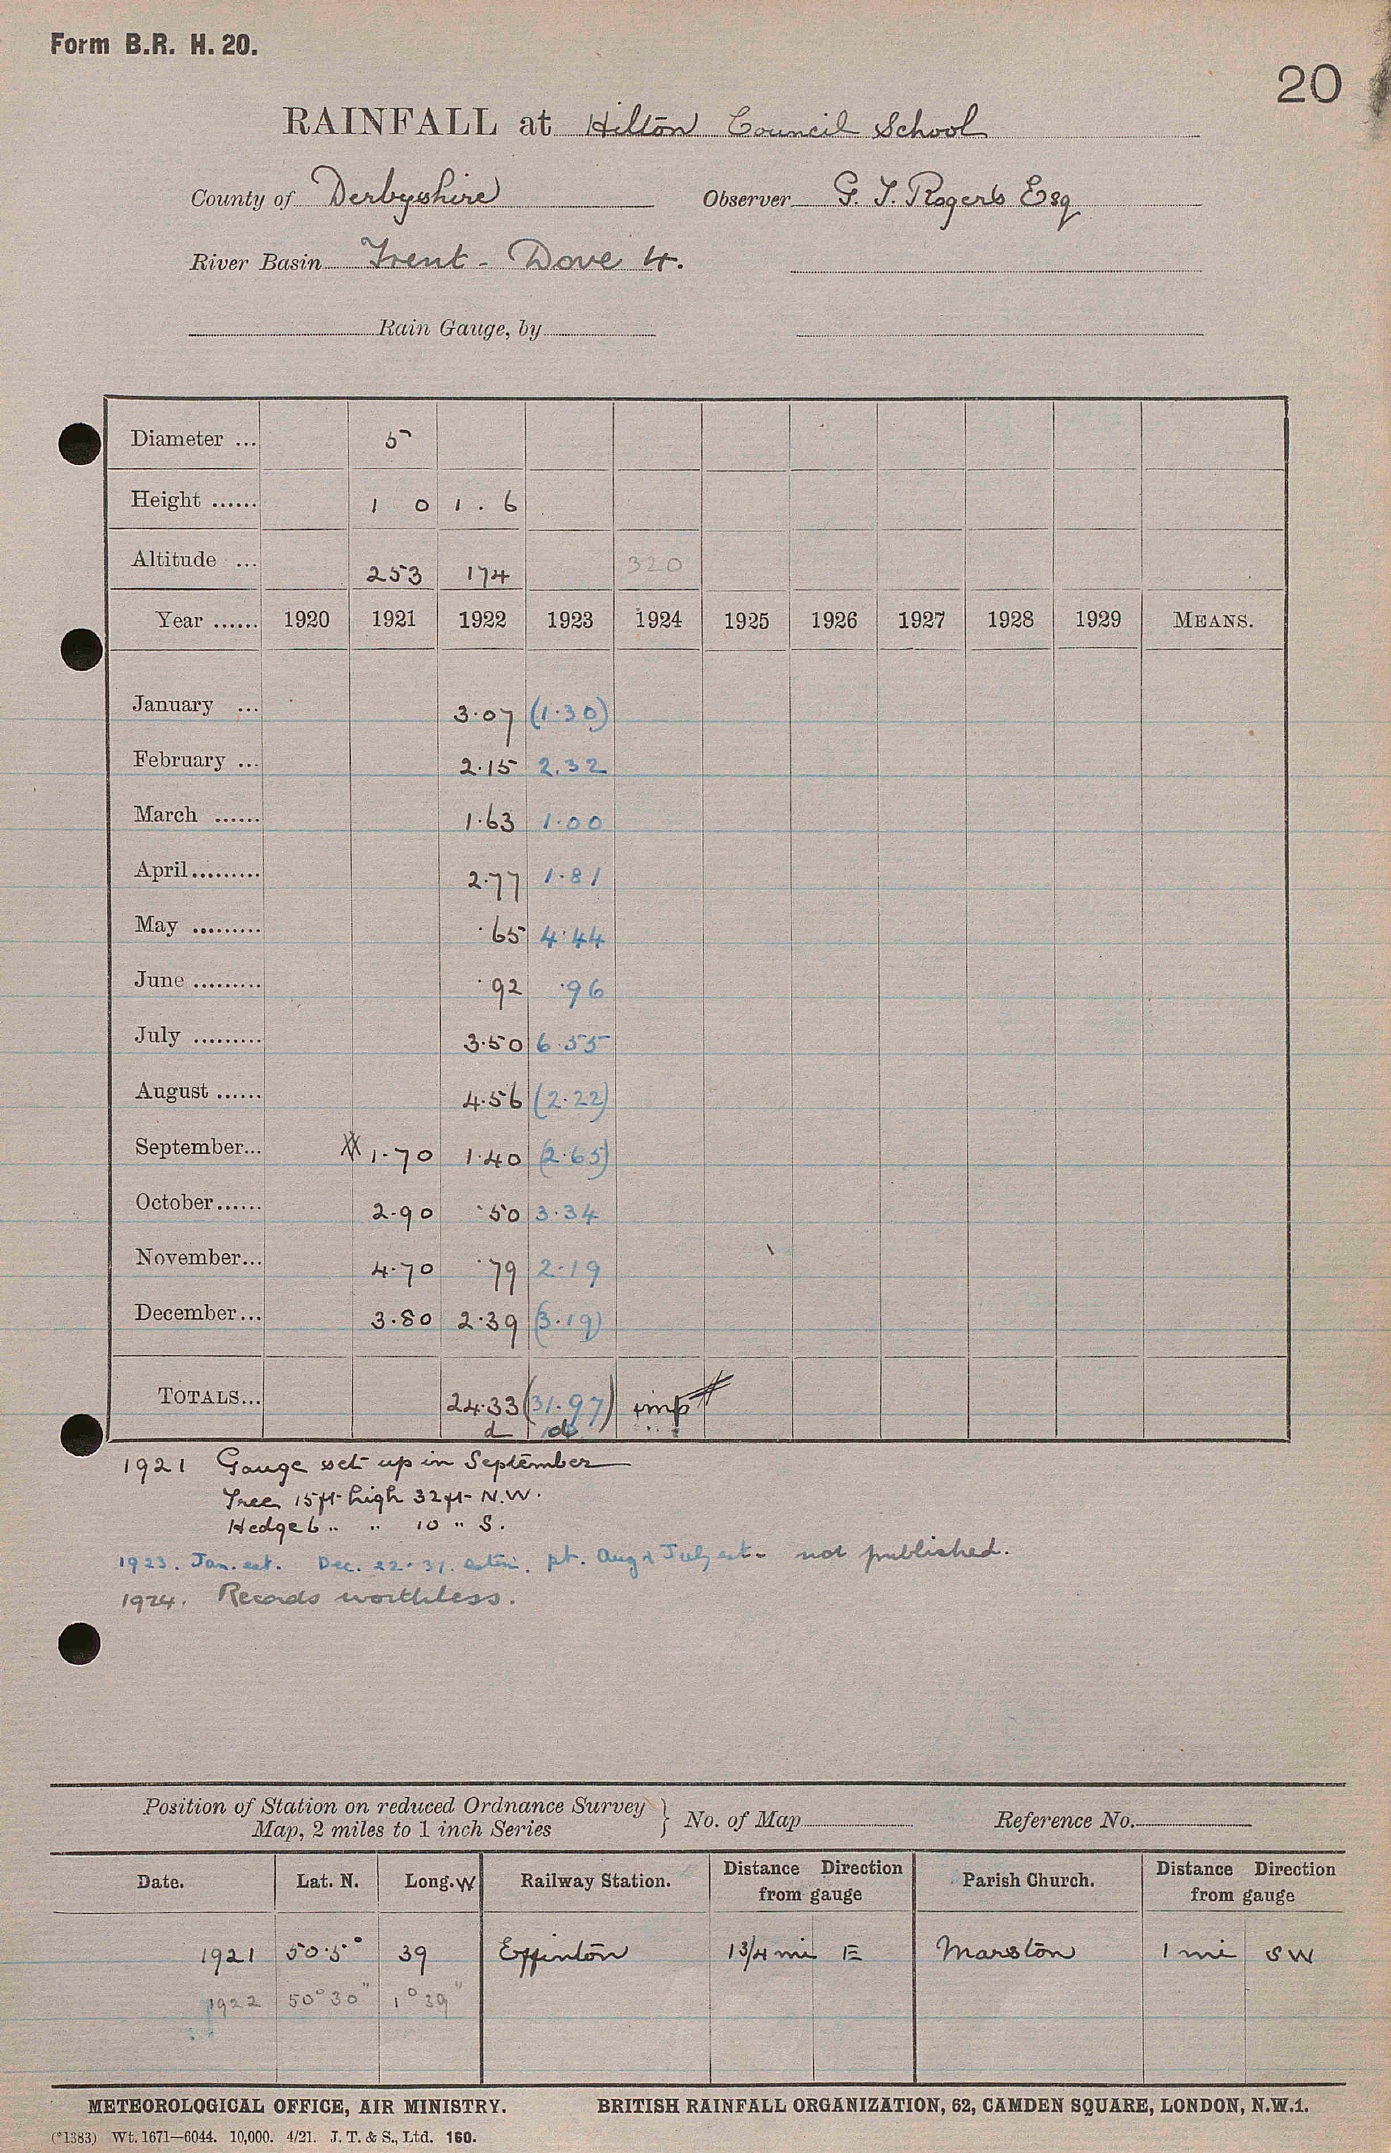 Form B.R. H. 20.
20
RAINFALL at Hilton Council School
County of Derbyshire Observer G. T. Rogers Esq
River Basin Trent - Dove 4.
Rain Gauge, by
Diameter ... 5
Height ...... 1 0 1 . 6
Altitude ... 253 174 320
Year ...... 1920 1921 1922 1923 1924 1925 1926 1927 1928 1929 MEANS.
January ... 3.07 (1.30)
February ... 2.15 2.32
March ...... 1.63 1.00
April......... 2.77 1.81
May ......... .65 4.44
June ......... .92 .96
July ......... 3.50 6.55
August ...... 4.56 (2.22)
September... 1.70 1.40 (2.65)
October...... 2.90 .50 3.34
November... 4.70 .79 2.19
December... 3.80 2.39 (3.19)
TOTALS... 24.33 (31.97) imp
d d
1921 Gauge set up in September
Tree 15ft high 32ft N.W.
Hedge 6 " " 10 " S.
1923. Jan. est. Dec. 22-31. estim. pt. Aug & July est. not published.
1924. Records worthless.
Position of Station on reduced Ordnance Survey
Map, 2 miles to 1 inch Series } No. of Map Reference No.
Date. Lat. N. Long. W Railway Station. Distance Direction from gauge Parish Church. Distance Direction from gauge
1921 50.5° 39 Egginton 1 3/4 mi E Marston 1 mi SW
1922 50° 30" 1° 39"
METEOROLOGICAL OFFICE, AIR MINISTRY. BRITISH RAINFALL ORGANIZATION, 62, CAMDEN SQUARE, LONDON, N.W.1.
(*1383) Wt. 1671—6044. 10,000. 4/21. J. T. & S., Ltd. 160.